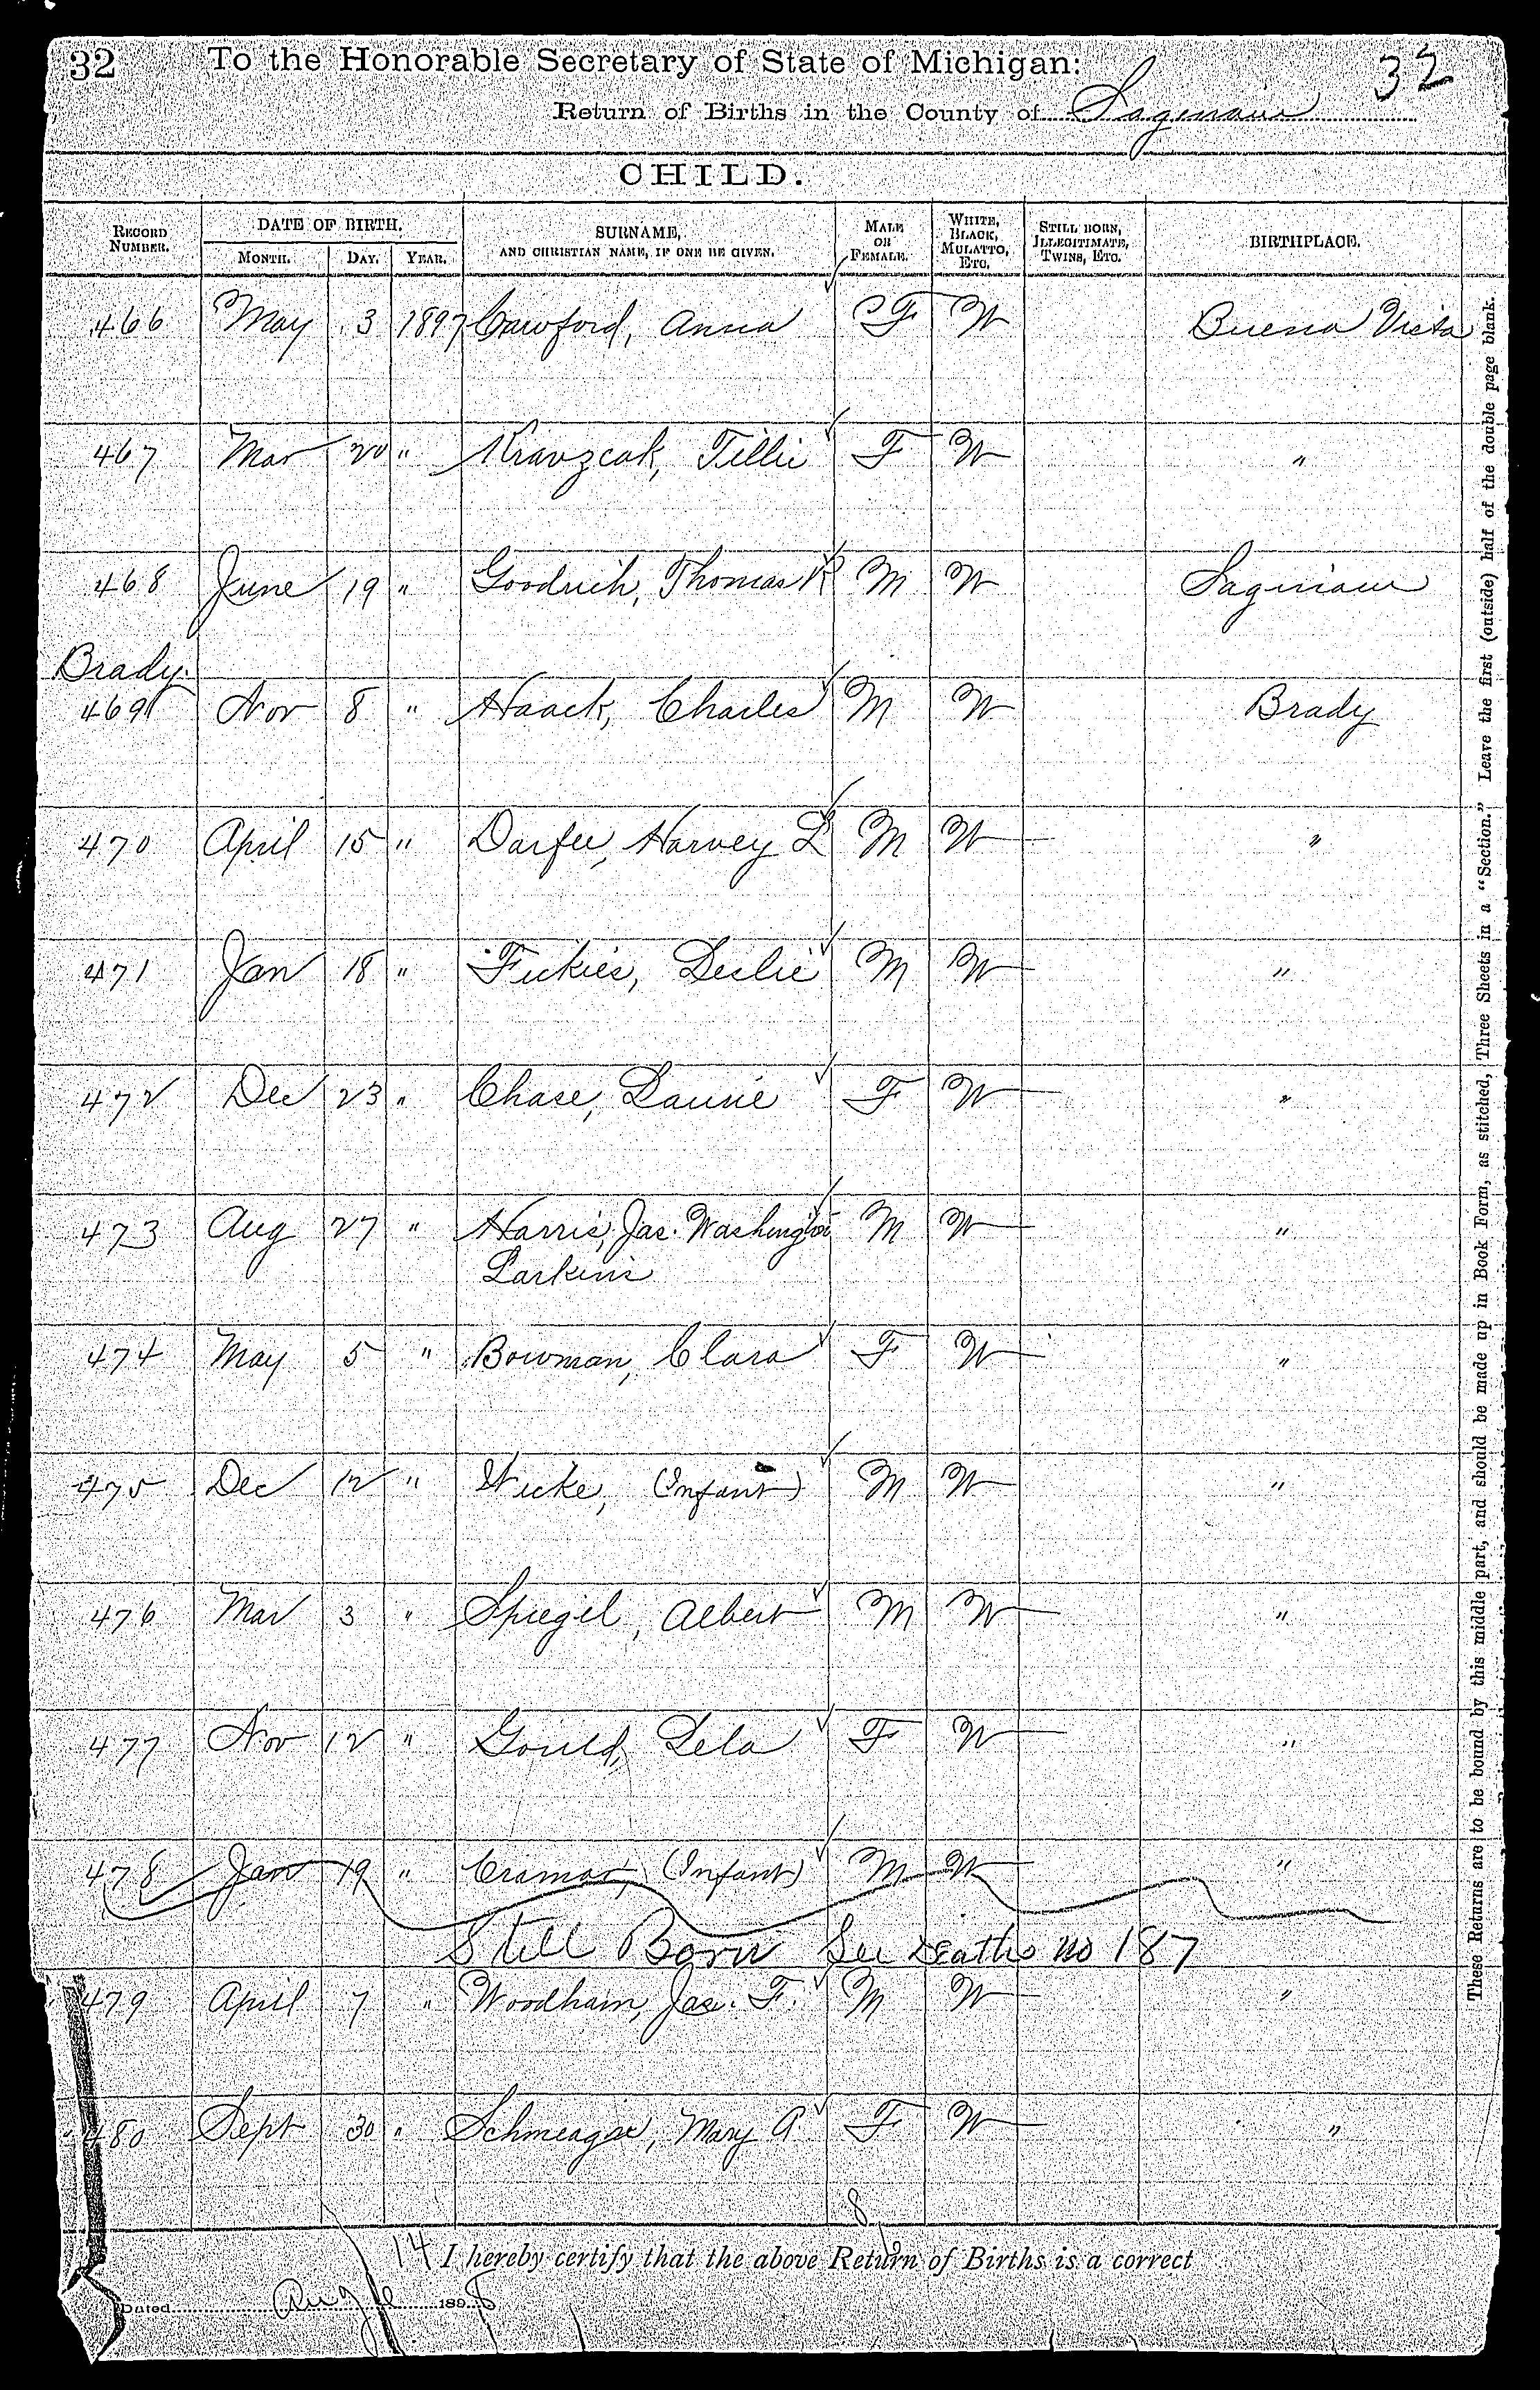 32 To the Honorable Secretary of State of Michigan: 32
Return of Births in the County of Saginaw
CHILD.
RECORD NUMBER. DATE OF BIRTH. MONTH. DAY. YEAR. SURNAME, AND CHRISTIAN NAME, IF ONE BE GIVEN. MALE OR FEMALE. WHITE, BLACK, MULATTO, ETC. STILL BORN, ILLEGITIMATE, TWINS, ETC. BIRTHPLACE.
466 May 3 1897 Crawford, Anna F W Buena Vista
467 Mar 20 " Kravzcak, Tillie F W "
468 June 19 " Goodrich, Thomas R M W Saginaw
Brady
469 Nov 8 " Haack, Charles M W Brady
470 April 15 " Harvey L M W "
471 Jan 18 " Leslie M W "
472 Dec 23 " Chase, F W "
473 Aug 27 " Harris, Jas. Washington M W "
Larkins
474 May 5 " Bowman, Clara F W "
475 Dec 12 " Wicke, (Infant) M W "
476 Mar 3 " Spiegel, Albert M W "
477 Nov 12 " Gould, Lela F W "
478 Jan 19 " Cramar, (Infant) M W "
Still Born See Deaths no 187
479 April 7 " Woodham, Jas. F. M W "
480 Sept 30 " Mary A F W "
8
14 I hereby certify that the above Return of Births is a correct
Dated Aug 1898
These Returns are to be bound by this middle part, and should be made up in Book Form, as stitched, Three Sheets in a "Section." Leave the first (outside) half of the double page blank.